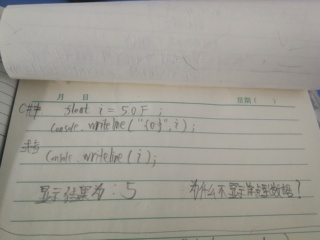 月 日 星期( )
C#中 float i = 5.0F ;
Console.writeline("{0}",i);
或者
Console.writeline(i);
显示结果为:5 为什么不显示单点型数据?